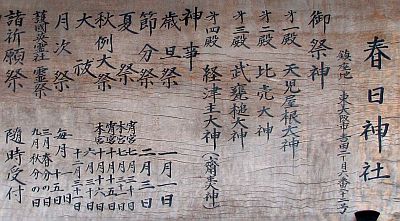 春日神社
鎮座地 東大阪市吉田一丁目六番十二号
御祭神
才一殿 天児屋根大神
才二殿 比売大神
才三殿 武甕槌大神
才四殿 経津主大神(斎大神)
神事
歳旦祭 一月一日
節分祭 二月三日
夏祭 宵宮 七月二十日
本宮 七月二十一日
秋例大祭 宵宮 十月
本宮 十月十六日
大祓 六月三十日
十二月三十一日
月次祭 毎月 一日
十五日
護国英霊社 霊祭 三月 春分の日
九月 秋分の日
諸祈願祭 随時受付